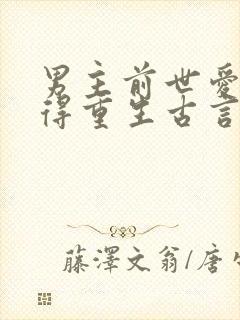 男主前世爱
得重生古言
藤澤文翁/唐